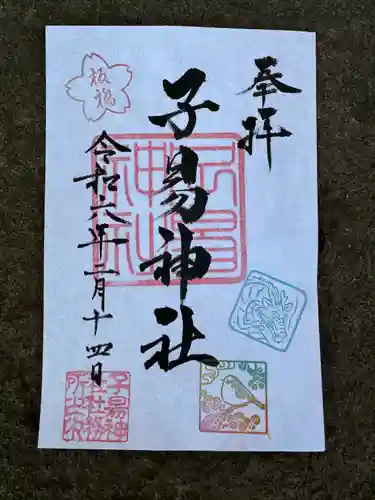 奉拝
子易神社
令和六年二月十四日
板橋
子易神
社社務
所之印